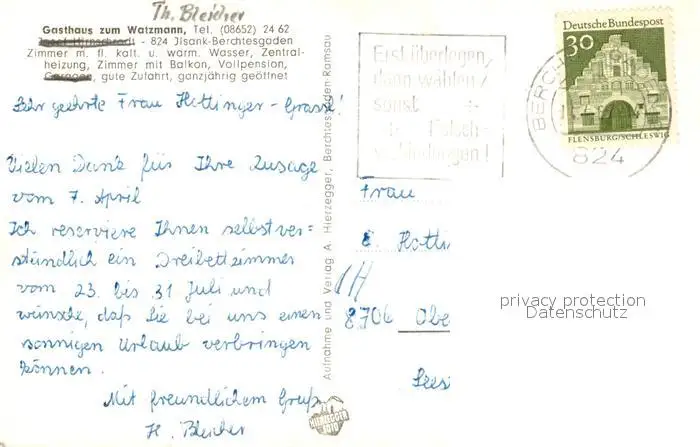 Th. Bleicher
Gasthaus zum Watzmann, Tel. (08652) 24 62
- 824 Jlsank-Berchtesgaden
Zimmer m. fl. kalt. u. warm. Wasser, Zentral-
heizung, Zimmer mit Balkon, Vollpension,
Garagen, gute Zufahrt, ganzjährig geöffnet
Sehr geehrte Frau Hottinger-Grasse!
Vielen Dank für Ihre Zusage
vom 7. April
Ich reserviere Ihnen selbstver=
ständlich ein Dreibettzimmer
vom 23. bis 31 Juli und
wünsche, daß Sie bei uns einen
sonnigen Urlaub verbringen
können.
Mit freundlichem Gruß
H. Bleicher
Aufnahme und Verlag A. Hierzegger, Berchtesgaden-Ramsau
HIERZEGGER
Erst überlegen,
dann wählen/
sonst
Falsch-
verbindungen!
Deutsche Bundespost
30
FLENSBURG/SCHLESWIG
BERCH
824
Frau
E. Hotti
CH
8706 Obe
Sees
privacy protection
Datenschutz